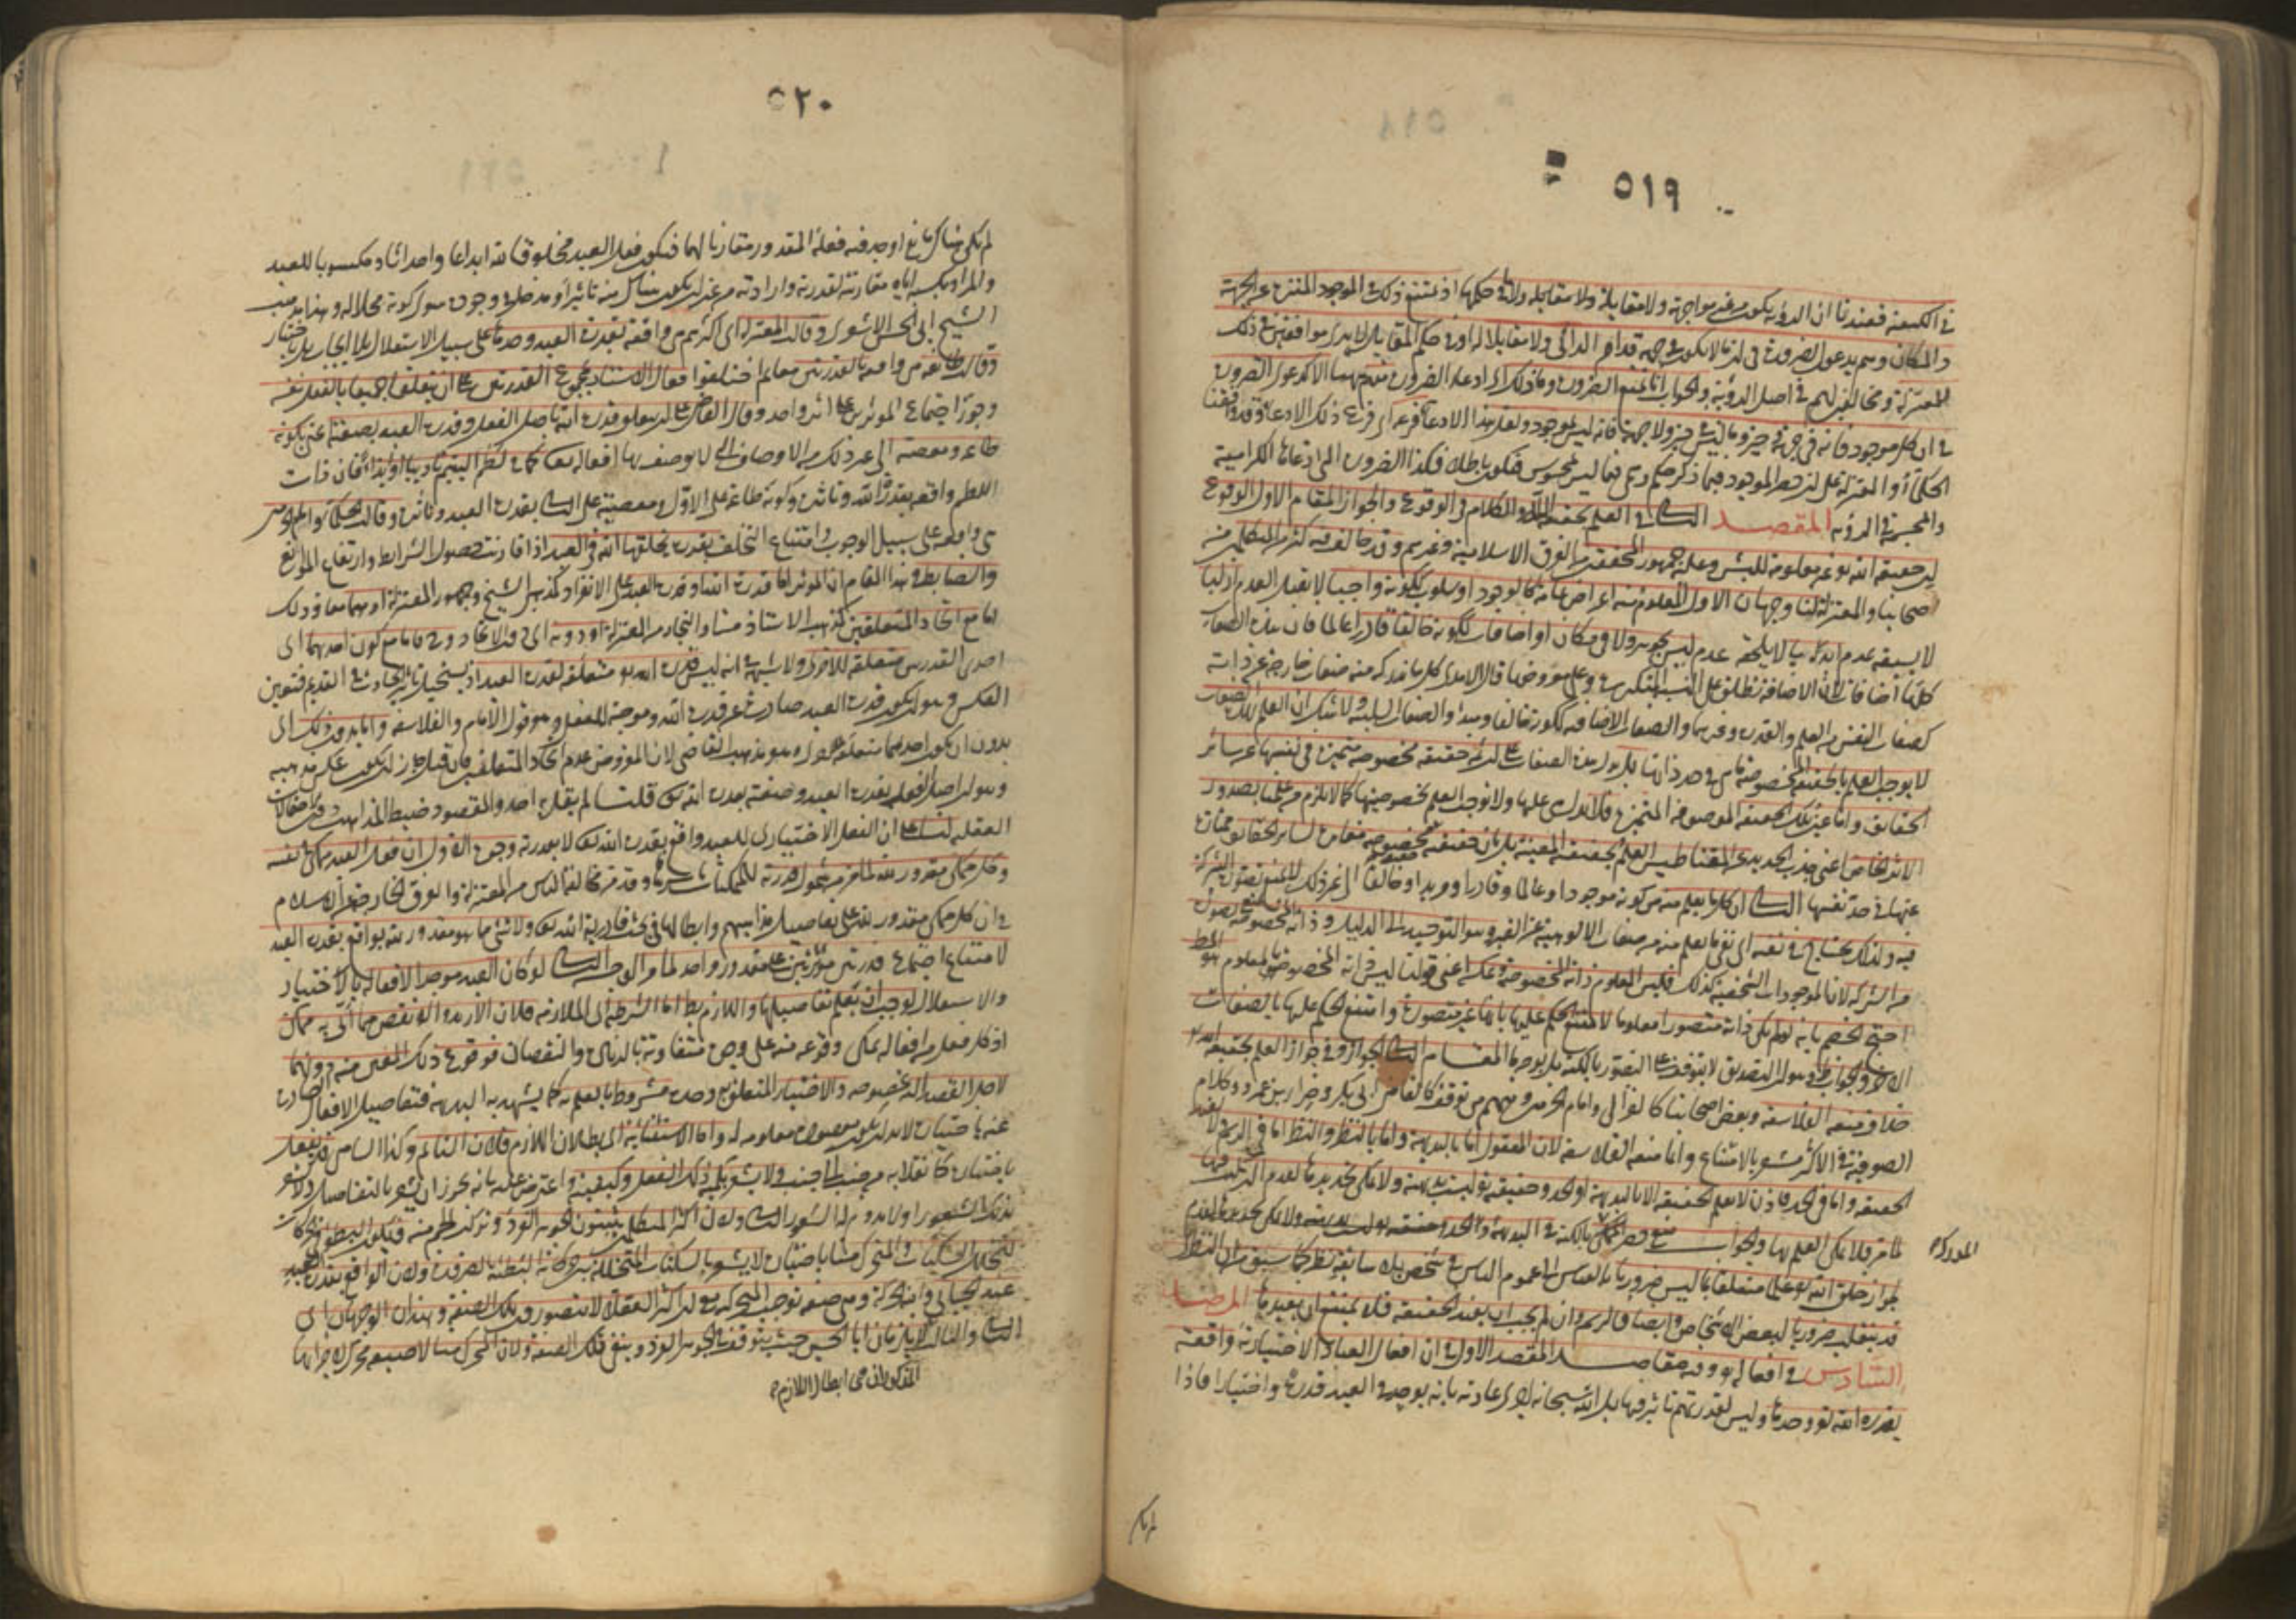 ٥١٩
في الكيفية فعندنا ان الرؤية يكون من غير مواجهة ولا مقابلة ولا ما في حكمها اذ يمتنع ذلك في الموجود المنزه عن الجهة
والمكان وهم يدعون الضرورة في ان ما لا يكون في جهة قدام الرائي ولا مقابلا له او في حكم المقابل لا يرى موافقين في ذلك
للمعتزلة ومخالفين لهم في اصل الرؤية والجواب انا نمنع الضرورة وما ذلك اي ادعاء الضرورة منهم ههنا الا كدعوى الضرورة
في ان كل موجود فانه في جهة وحيز وما ليس في حيز ولا جهة فانه ليس بموجود ولعل هذا الادعاء فرعه اي فرع ذلك الادعاء وقد وافقنا
الحكماء والمعتزلة على ان حصر الموجود فيما ذكر حكم وهمي فيما ليس بمحسوس فيكون باطلا فكذا الضرورة التي ادعاها الكرامية
والمجسمة في الرؤية المقصد الثاني في العلم بحقيقة الله والكلام في الوقوع والجواز المقام الاول الوقوع
ان حقيقة الله تع غير معلومة للبشر وعليه جمهور المحققين من الفرق الاسلامية وغيرهم وقد خالف فيه كثير من المتكلمين من
اصحابنا والمعتزلة لنا وجهان الاول المعلوم منه اعراض عامة كالوجود او سلوب ككونه واجبا لا يقبل العدم ازليا
لا يسبقه عدم ابديا لا يلحقه عدم ليس بجوهر ولا في مكان او اضافات ككونه خالقا قادرا عالما فان هذه الصفات
كلها اضافات لان الاضافة تطلق على النسب المتكررة وعلى معروضها قال الآمدي كل ما ندركه منه صفات خارجة عن ذاته
كصفات النفس من العلم والقدرة وغيرهما والصفات الاضافية ككونه خالقا ومبدأ والصفات السلبية ولا شك ان العلم بهذه الصفات
لا يوجب العلم بالحقيقة المخصوصة ما هي في حد ذاتها بل يدل هذه الصفات على ان ثم حقيقة مخصوصة متميزة في نفسها عن سائر
الحقائق واما عين تلك الحقيقة الموصوفة المتميزة فلا تدل عليها ولا توجب العلم بخصوصيتها كما لا يلزم من علمنا بصدور
الاثر الخاص اعني جذب الحديد عن المقناطيس العلم بحقيقته المعينة بل بان حقيقته مخصوصة مغايرة لسائر الحقائق ممتازة
عنها في حد نفسها الثاني ان كل ما يعلم منه من كونه موجودا وعالما وقادرا ومريدا وخالقا الى غير ذلك لا يمنع تصوره الشركة
فيه ولذلك يحتاج في نفيه الى نفي ما يعلم منه من صفات الالوهية عن الغير وهو التوحيد الى الدليل وذاته المخصوصة يمنع تصورها
من الشركة لان الموجودات الشخصية كذلك فليس المعلوم ذاته المخصوصة وعكسه اعني قولنا ليس ذاته المخصوصة بمعلوم هو المط
احتج الخصم بانه لو لم يكن ذاته متصورا معلوما لامتنع الحكم عليها بانها غير متصورة وامتنع الحكم عليها بالصفات
الاخرى والجواب ظ وهو ان التصديق لا يتوقف على التصور بالكنه بل بوجه ما المقام الثاني الجواز وفي جواز العلم بحقيقة الله تع
خلاف منعه الفلاسفة وبعض اصحابنا كالغزالي وامام الحرمين ومنهم من توقف كالقاضي ابي بكر وضرار بن عمرو وكلام
الصوفية في الاكثر مشعر بالامتناع وانما منعه الفلاسفة لان المعقول اما بالبديهة واما بالنظر والنظر اما في الرسم ولا يفيد
الحقيقة واما في الحد فاذن لا تعلم الحقيقة الا بالبديهة او الحد وحقيقته تع ليست بديهية ولا يمكن تحديدها لعدم التركيب فيها
لما مر فلا يمكن العلم بها والجواب منع حصر المدرك بالكنه في البديهة والحد
المدرك
لجواز خلق الله تع علما متعلقا بما ليس ضروريا بالقياس الى عموم الناس في شخص بلا سابقة نظر كما سبق من ان النظري
قد ينقلب ضروريا لبعض الاشخاص وايضا فالرسم وان لم يجب ان يفيد الحقيقة فلا يمتنع ان يفيدها المرصد
السادس في افعاله تع وفيه مقاصد المقصد الاول في ان افعال العباد الاختيارية واقعة
بقدرة الله تع وحدها وليس لقدرتهم تأثير فيها بل الله سبحانه اجرى عادته بانه يوجد في العبد قدرة واختيارا فاذا
لم يكن
٥٢٠
لم يكن هناك مانع اوجد فيه فعله المقدور مقارنا لهما فيكون فعل العبد مخلوقا لله ابداعا واحداثا ومكسوبا للعبد
والمراد بكسبه اياه مقارنته لقدرته وارادته من غير ان يكون هناك منه تأثير او مدخل في وجوده سوى كونه محلا له وهذا مذهب
الشيخ ابي الحسن الاشعري وقالت المعتزلة اي اكثرهم هي واقعة بقدرة العبد وحدها على سبيل الاستقلال بلا ايجاب بل باختيار
وقالت طائفة هي واقعة بالقدرتين معا ثم اختلفوا فقال الاستاذ بمجموع القدرتين على ان يتعلقا جميعا بالفعل نفسه
وجوز اجتماع المؤثرين على اثر واحد وقال القاضي على ان يتعلق قدرة الله باصل الفعل وقدرة العبد بصفته اعني بكونه
طاعة ومعصية الى غير ذلك من الاوصاف التي لا يوصف بها افعاله تع كما في لطم اليتيم تأديبا او ايذاء فان ذات
اللطم واقعة بقدرة الله وتأثيره وكونه طاعة على الاول ومعصية على الثاني بقدرة العبد وتأثيره وقالت الحكماء وامام الحرمين
هي واقعة على سبيل الوجوب وامتناع التخلف بقدرة يخلقها الله في العبد اذا قارنت حصول الشرائط وارتفاع الموانع
والضابط في هذا المقام ان المؤثر اما قدرة الله او قدرة العبد على الانفراد كمذهبي الشيخ وجمهور المعتزلة او هما معا وذلك
اما مع اتحاد المتعلقين كمذهب الاستاذ منا والنجار من المعتزلة او دونه اي دون الاتحاد وح فاما مع كون احدهما اي
احدى القدرتين متعلقة للاخرى ولا شبهة انه ليس قدرة الله تع متعلقة لقدرة العبد اذ يستحيل تأثير الحادث في القديم فتعين
العكس وهو ان يكون قدرة العبد صادرة عن قدرة الله وموجبة للفعل وهو قول الامام والفلاسفة واما بدون ذلك اي
بدون ان يكون احدهما متعلقة للاخرى وهو مذهب القاضي لان المفروض عدم اتحاد المتعلقين فان قيل جاز ان يكون عكس مذهبه
وهو ان اصل الفعل بقدرة العبد وصفته بقدرة الله تع قلت لم يقل به احد والمقصود ضبط المذاهب دون الاحتمالات
العقلية لنا على ان الفعل الاختياري للعبد واقع بقدرة الله تع لا بقدرته وجوه الاول ان فعل العبد ممكن في نفسه
وكل ممكن مقدور لله لما مر من شمول قدرته للممكنات باسرها وقد مر مخالفة الناس من المعتزلة والفرق الخارجة عن الاسلام
في ان كل ممكن مقدور لله على تفاصيل مذاهبهم وابطالها في بحث قادرية الله تع ولا شيء مما هو مقدور لله بواقع بقدرة العبد
لامتناع اجتماع قدرتين مؤثرتين على مقدور واحد لما مر الوجه الثاني لو كان العبد موجدا لافعاله بالاختيار
والاستقلال لوجب ان يعلم تفاصيلها واللازم بط اما الشرطية اي الملازمة فلان الازيد والانقص مما اتى به ممكن
اذ كل فعل من افعاله يمكن وقوعه منه على وجوه متفاوتة بالزيادة والنقصان فوقوع ذلك المعين منه دونهما
لاجل القصد اليه بخصوصه والاختيار المتعلق به وحده مشروط بالعلم به كما يشهد به البديهة فتفاصيل الافعال الصادرة
عنه باختياره لا بد ان يكون مقصودة معلومة له واما الاستثنائية اي بطلان اللازم فلان النائم وكذا الساهي قد يفعل
باختياره كانقلابه من جنب الى جنب ولا يشعر بكمية ذلك الفعل وكيفيته واعترض عليه بانه يجوز ان يشعر بالتفاصيل ولا يشعر
بذلك الشعور او لا يدوم له الشعور الثاني ولان اكثر المتكلمين يثبتون الجوهر الفرد وتركب الجسم منه فيكون البطؤ في الحركات
لتخلل السكنات والمتحرك منا باختياره لا يشعر بالسكنات المتخللة بين حركاته البطيئة بالضرورة ولان الواقع بقدرة العبد
عند الجبائي وابنه الحركة وهي صفة توجب المتحركية مع ان اكثر العقلاء لا يتصورون تلك الصفة وهذان الوجهان اي
الثاني والثالث لا يلزمان ابا الحسين حيث يتوقف في الجوهر الفرد وينفي تلك الصفة ولان المحرك منا لاصبعه محرك لاجزائها
المذكوران في ابطال اللازم